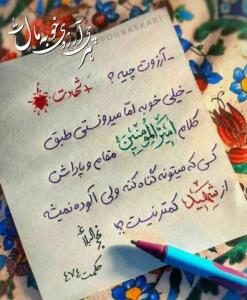 هر چی آرزوی خوبه مال تو
POURASKARI
ـ آرزوت چیه ؟
+ شهادت
ـ خیلی خوبه اما میدونستی طبق
کلام امیرالمؤمنین مقام و پاداش
کسی که میتونه گناه کنه ولی آلوده نمیشه
از شهید کمتر نیست ؟!
نهج البلاغه
حکمت ۴۷۴